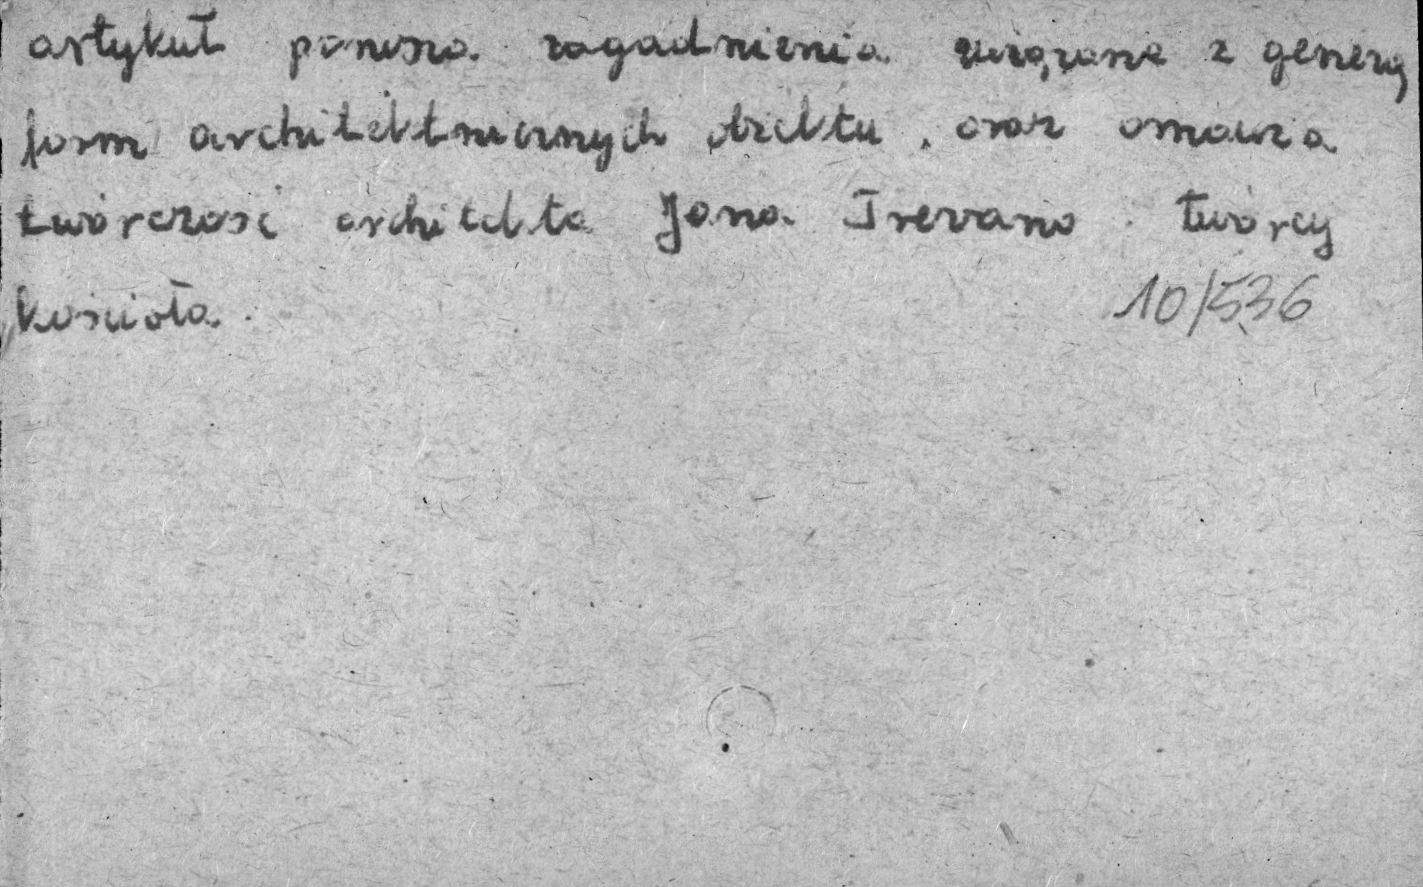 artykuł porusza zagadnienia związane z genezą
form architektonicznych obiektu, oraz omawia
twórczość architekta Jana Trevano twórcy
kościoła.
10/536